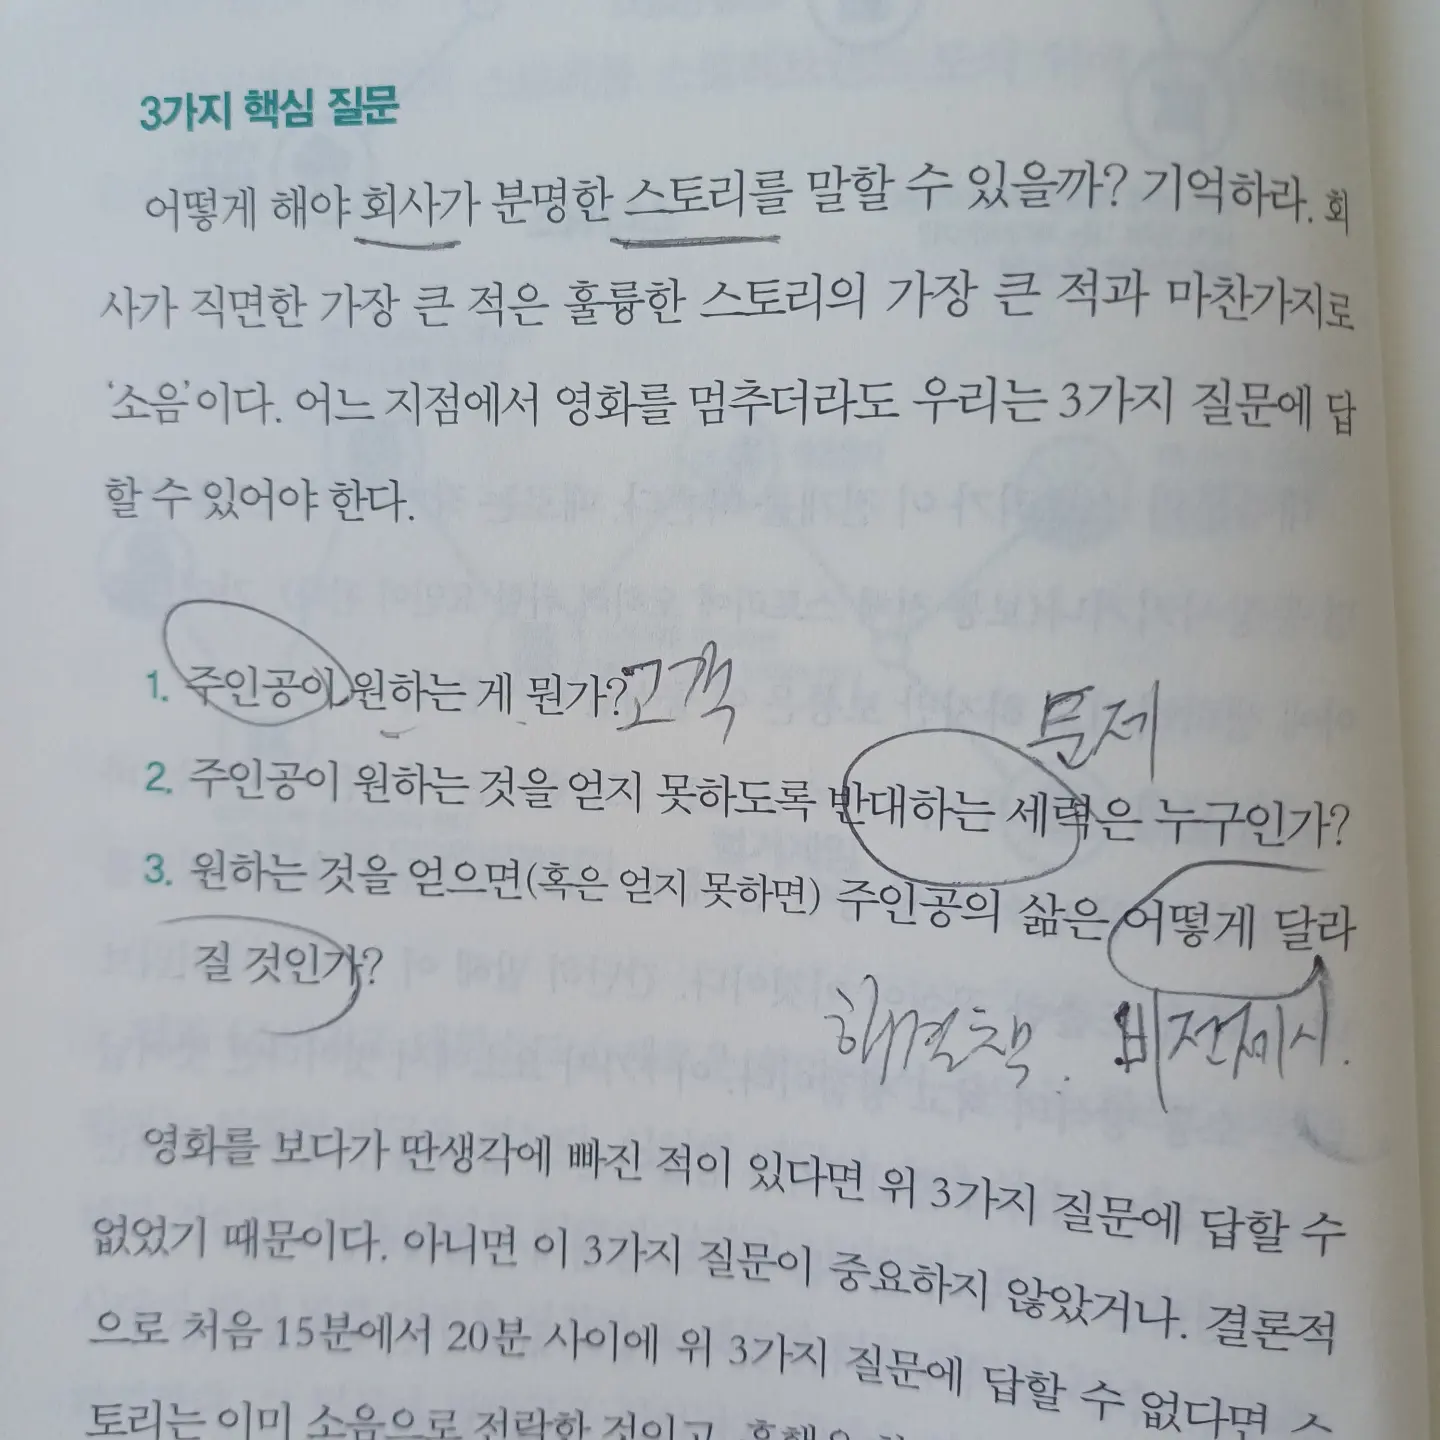 3가지 핵심 질문
어떻게 해야 회사가 분명한 스토리를 말할 수 있을까? 기억하라. 회
사가 직면한 가장 큰 적은 훌륭한 스토리의 가장 큰 적과 마찬가지로
‘소음’이다. 어느 지점에서 영화를 멈추더라도 우리는 3가지 질문에 답
할 수 있어야 한다.
1. 주인공이 원하는 게 뭔가? 고객
문제
2. 주인공이 원하는 것을 얻지 못하도록 반대하는 세력은 누구인가?
3. 원하는 것을 얻으면(혹은 얻지 못하면) 주인공의 삶은 어떻게 달라
질 것인가?
해결책. 비전제시.
영화를 보다가 딴생각에 빠진 적이 있다면 위 3가지 질문에 답할 수
없었기 때문이다. 아니면 이 3가지 질문이 중요하지 않았거나. 결론적
으로 처음 15분에서 20분 사이에 위 3가지 질문에 답할 수 없다면 스
토리는 이미 소음으로 전락한 것이고,